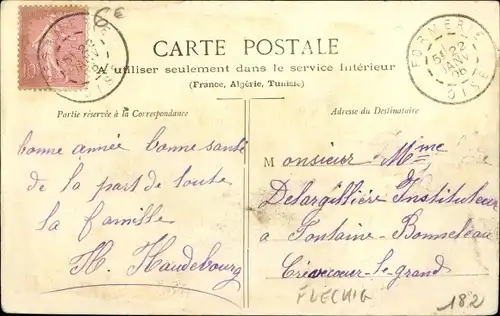 6€
FORMERIE
5E 22
JANV
06
OISE
10
CARTE POSTALE
A utiliser seulement dans le service Intérieur
(France, Algérie, Tunisie)
Partie réservée à la Correspondance
Adresse du Destinataire
bonne année bonne santé
de la part de toute
la famille
H. Haudebourg
Monsieur Mme
Delargillière Instituteur
a Fontaine-Bonneleau
Crèvecoeur-le-grand
FLECHIG
182